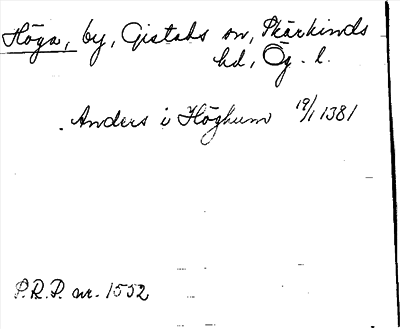 Höga, by, Gistads sn, Skärkinds
hd, Ög. l.
Anders i Höghum 19/1 1381
P.R.P. nr. 1552